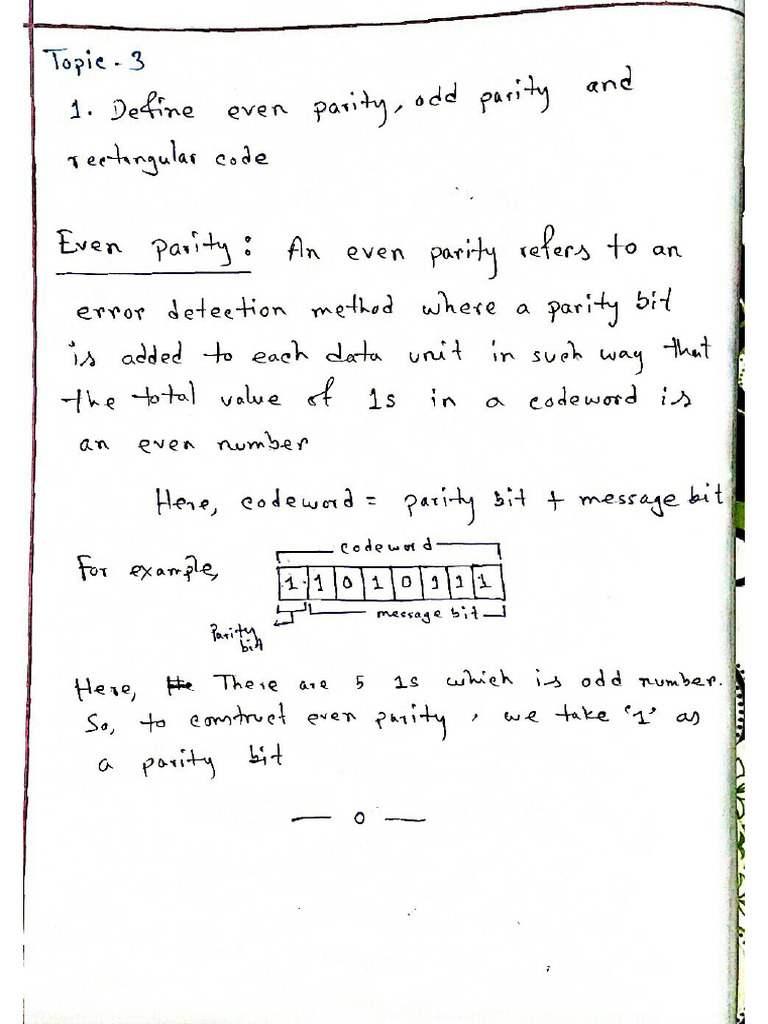 Topic - 3
1. Define even parity, odd parity and
rectangular code
Even parity: An even parity refers to an
error detection method where a parity bit
is added to each data unit in such way that
the total value of 1s in a codeword is
an even number
Here, codeword = parity bit + message bit
For example,
codeword
1 1 0 1 0 1 1 1
message bit
Parity
bit
Here, There are 5 1s which is odd number.
So, to construct even parity, we take '1' as
a parity bit
— 0 —